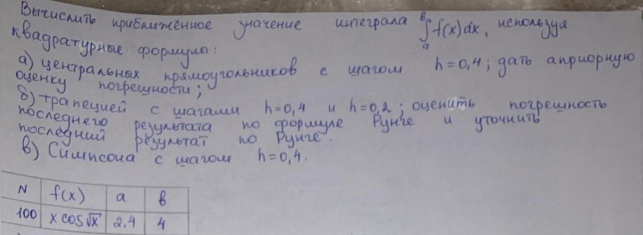 Вычислить приближённое значение интеграла ∫ₐᵇ f(x)dx, используя
квадратурные формулы:
а) центральных прямоугольников с шагом h=0,4; дать априорную
оценку погрешности;
б) трапецией с шагами h=0,4 и h=0,2; оценить погрешность
последнего результата по формуле Рунге и уточнить
последний результат по Рунге.
в) Симпсона с шагом h=0,4.
N f(x) a b
100 x cos√x 2,4 4